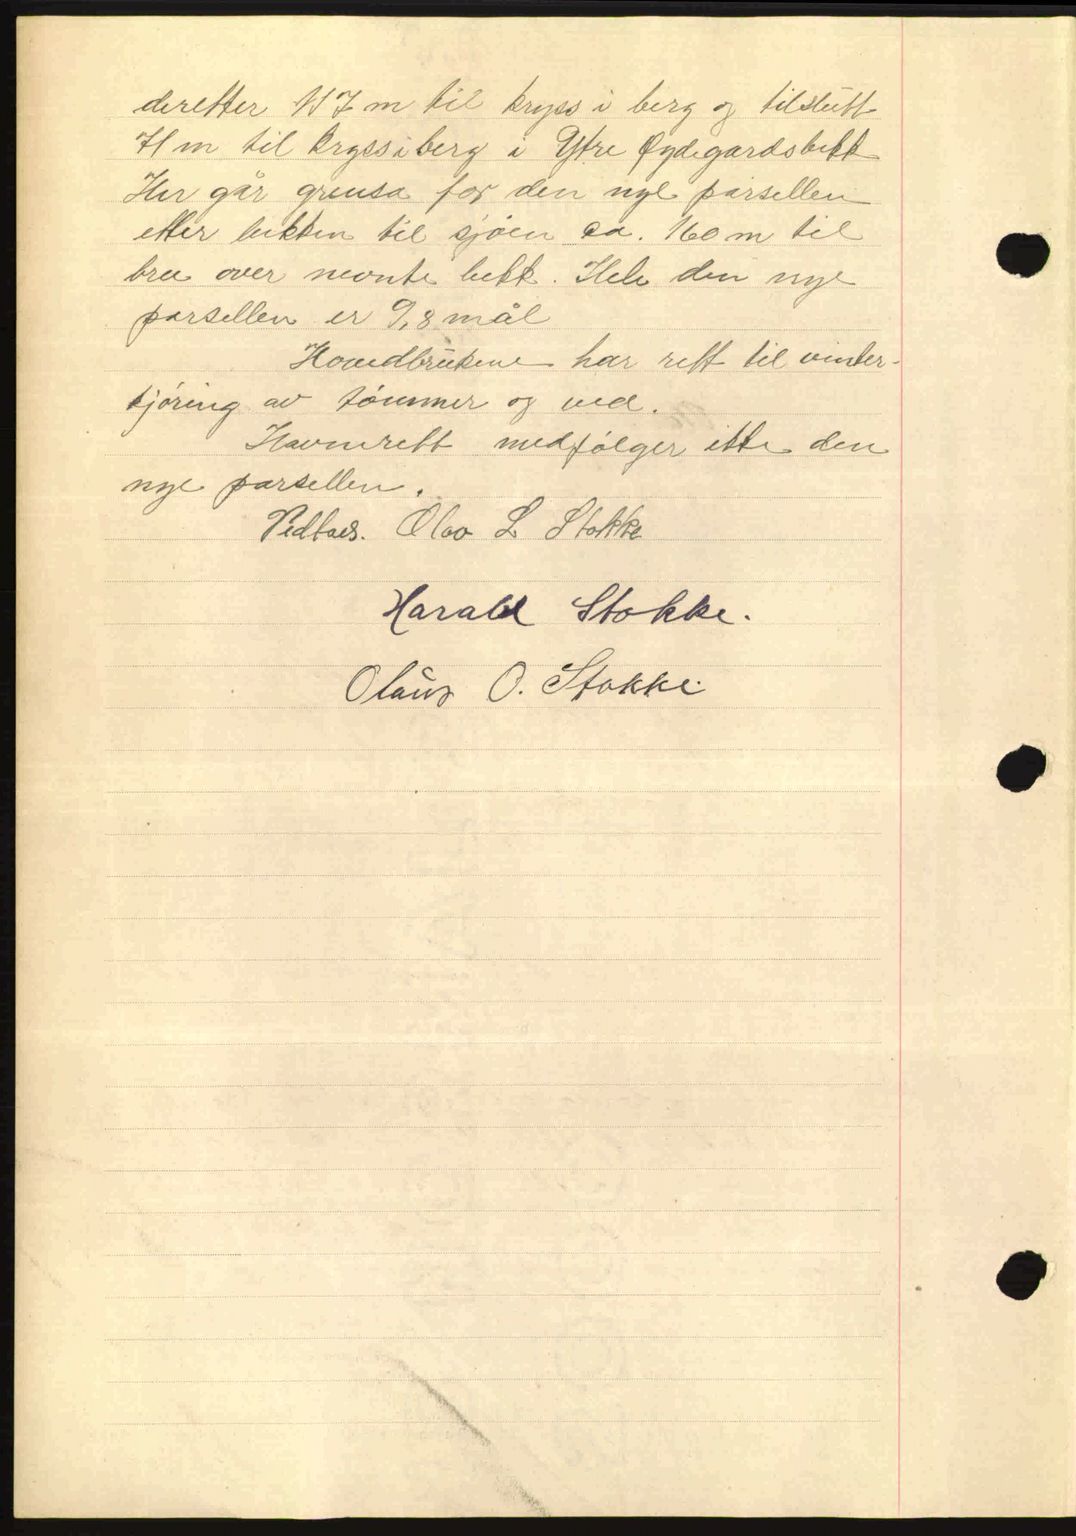 deretter 117 m til kryss i berg og tilslutt
71 m til kryss i berg i Ytre Øydegardsbekk
Her går grensa for den nye parsellen
etter bekken til sjøen ca. 160 m til
bru over nevnte bekk. Hele den nye
parsellen er 9,8 mål
Hovedbrukene har rett til vinter-
kjøring av tømmer og ved.
Havnerett medfølger ikke den
nye parsellen.
Vedtaes. Olav L Stokke
Harald Stokke.
Olaus O. Stokke.